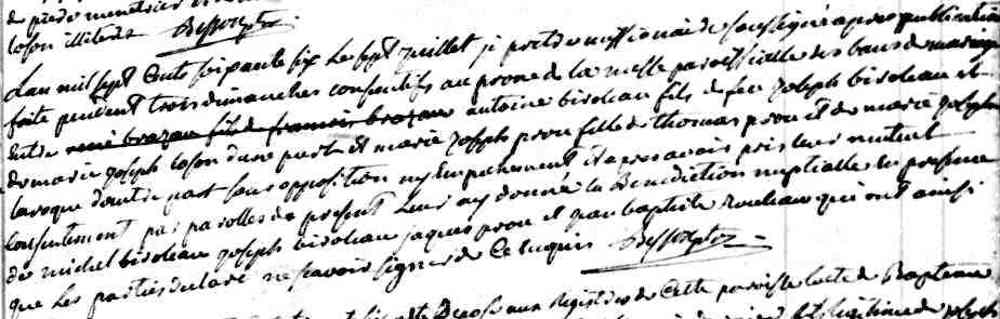 de
lafon illiterés
L'an mil sept Cents soixante six Le sept juillet je pretre missionaire soussigné apres publication
faite pendent trois dimanches consecutifs au prone de la messe paroissialle des bans de mariage
Entre rené brazau fils de francois brazau antoine biroleau fils de feu joseph biroleau et
de marie joseph lafon d'une part et marie joseph prou fille de thomas prou et de marie joseph
laroque d'autre part sans opposition ny Empechement et apres avoir pris leur mutuel
Consentement par parolles de present Leur ay donné la Benediction nuptialle En presence
de michel biroleau joseph biroleau jaques prou et jean baptiste rouleau qui ont ainsi
que Les parties declaré ne scavoir signer de Ce Enquis
Registres de Cette paroisse lacte de Bapteme